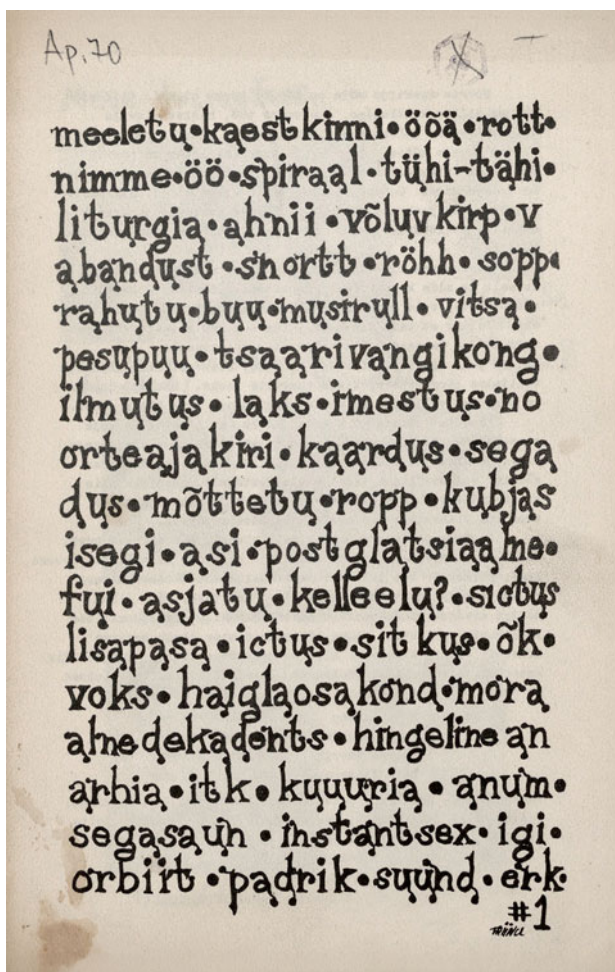 Ap. 70
meeletu•kaest kinni•öõä•rott•
nimme•öö•spiraal•tühi-tähi•
liturgia•ahnii•võluv kirp•v
abandust•snortt•röhh•soppa
rahutu•buu•musirull•vitsa•
pesupuu•tsaari vangikong•
ilmutus•laks•imestus•no
orteajakiri•kaardus•sega
dus•mõttetu•ropp•kubjas
isegi•asi•postglatsiaalne•
fui•asjatu•kelle elu?•sictus
lisapasa•ictus•sitkus•õk•
voks•haiglaosakond•mora
alne dekadents•hingeline an
arhia•itk•kuuuria•anum•
segasaun•instantsex•igi•
orbiit•padrik•suund•erk•
#1